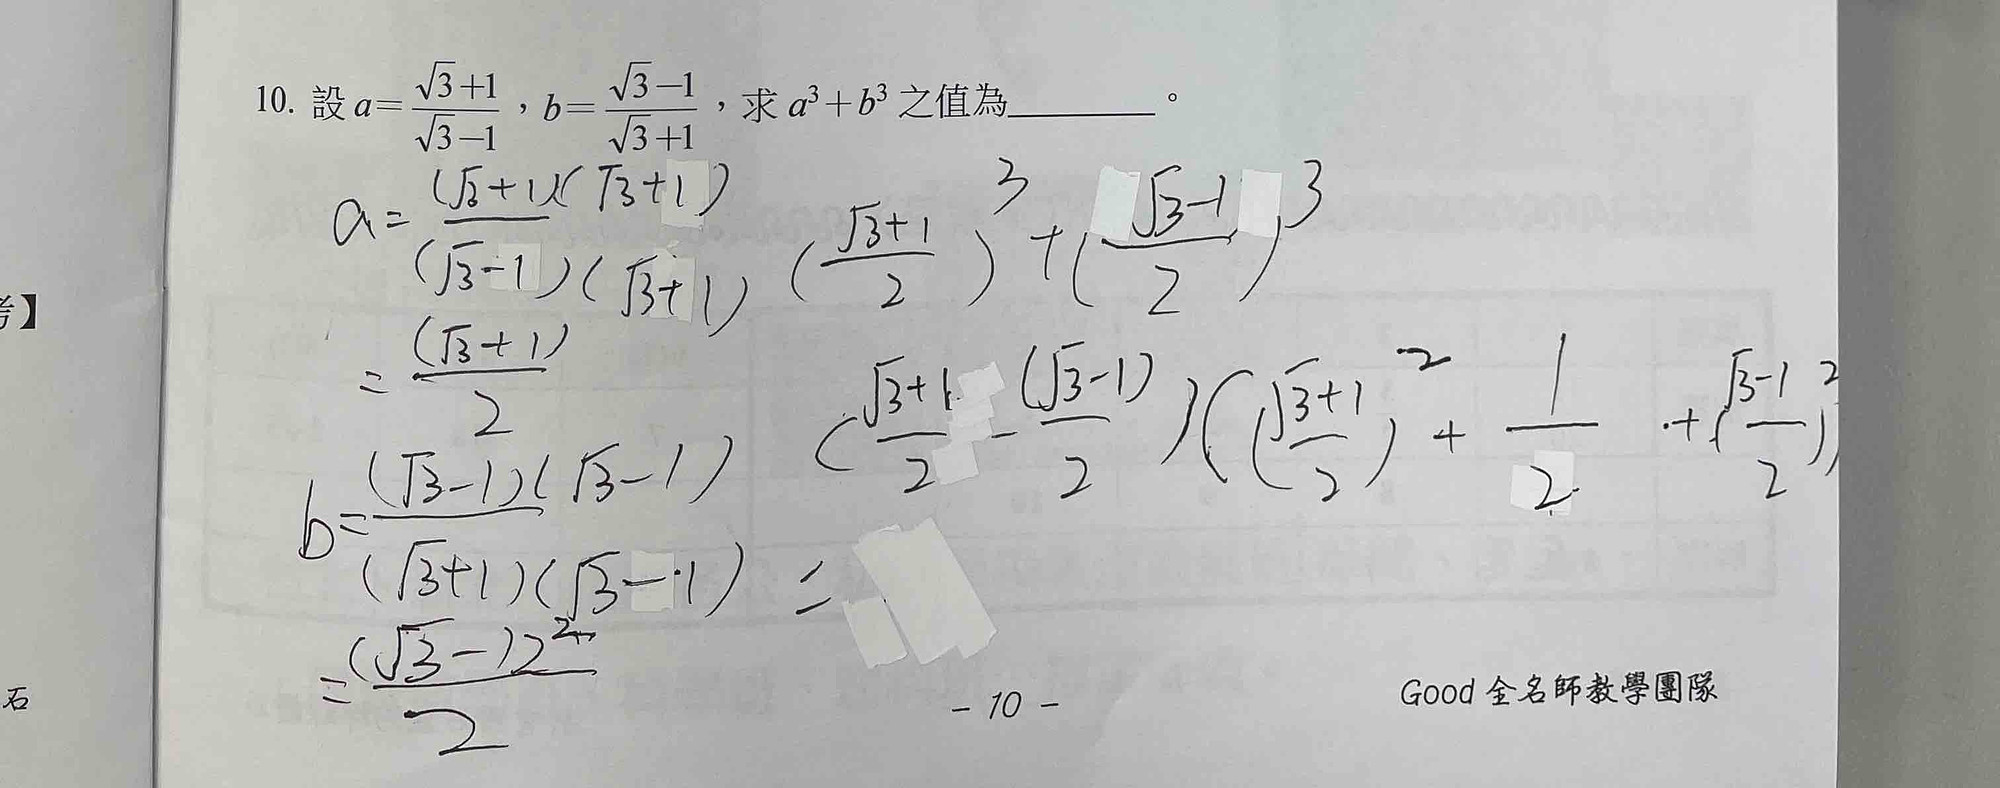 10. 設 a=(√3+1)/(√3−1)，b=(√3−1)/(√3+1)，求 a³+b³ 之值為________。
a= (√3+1)(√3+1)/(√3-1)(√3+1)
= (√3+1)/2
b= (√3-1)(√3-1)/(√3+1)(√3-1)
= (√3-1)2²/2
((√3+1)/2)³ + ((√3-1)/2)³
((√3+1)/2 - (√3-1)/2)(((√3+1)/2)² + 1/2 + ((√3-1)/2)²)
=
- 10 -
Good 全名師教學團隊
考】
石